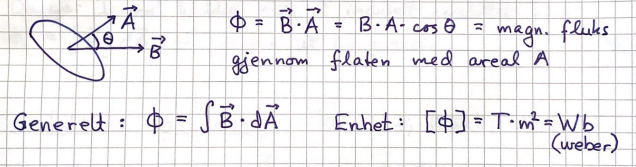 A⃗
θ
B⃗
Φ = B⃗ · A⃗ = B · A · cos θ = magn. fluks
gjennom flaten med areal A
Generelt : Φ = ∫ B⃗ · dA⃗ Enhet : [Φ] = T · m² = Wb
(weber)